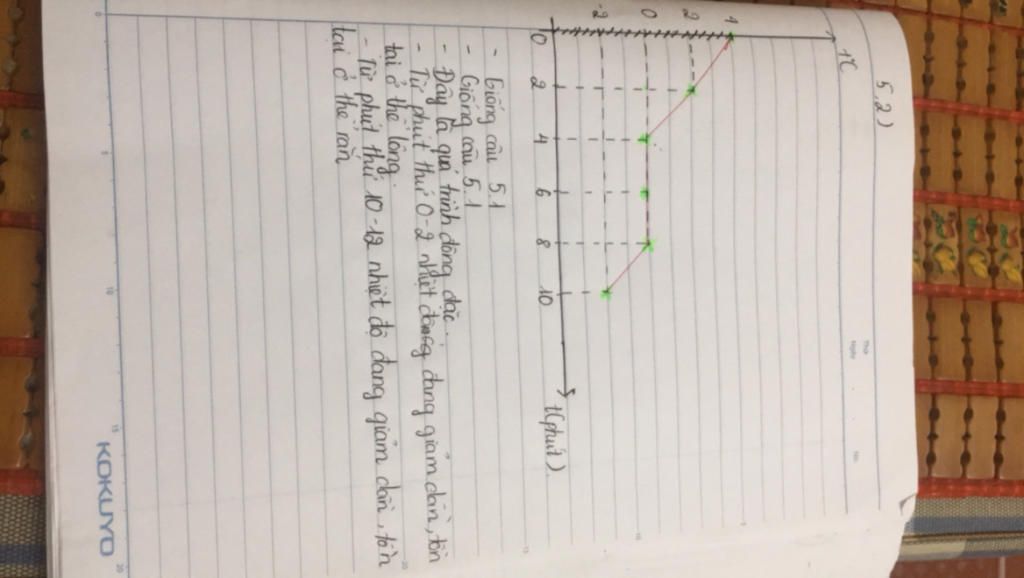 Thứ
Ngày
No.
5.2)
t°C
4
2
0
-2
0 2 4 6 8 10
t(phút)
- Giống câu 5.1
- Giống câu 5.1
- Đây là quá trình đông đặc.
- Từ phút thứ 0-2 nhiệt đông đang giảm dần, tồn
tại ở thể lỏng.
- Từ phút thứ 10-12 nhiệt độ đang giảm dần, tồn
tại ở thể rắn
0 5 10 15 20
KOKUYO